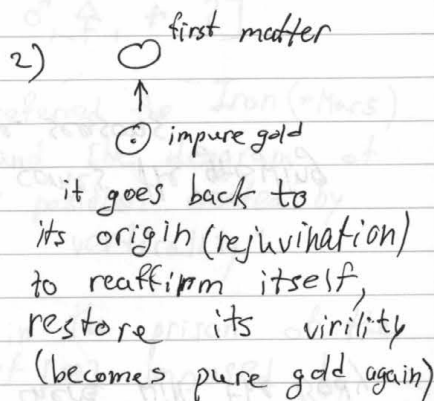 first matter
2)
impure gold
it goes back to
its origin (rejuvihation)
to reaffirm itself,
restore its virility
(becomes pure gold again)